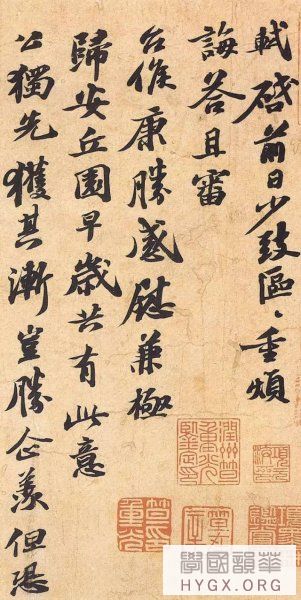 軾啓前日少致區區重煩
誨答且審
台候康勝感慰兼極
歸安丘園早歲共有此意
公獨先獲其漸豈勝企羨但恐
華韻國學
HYGX.ORG